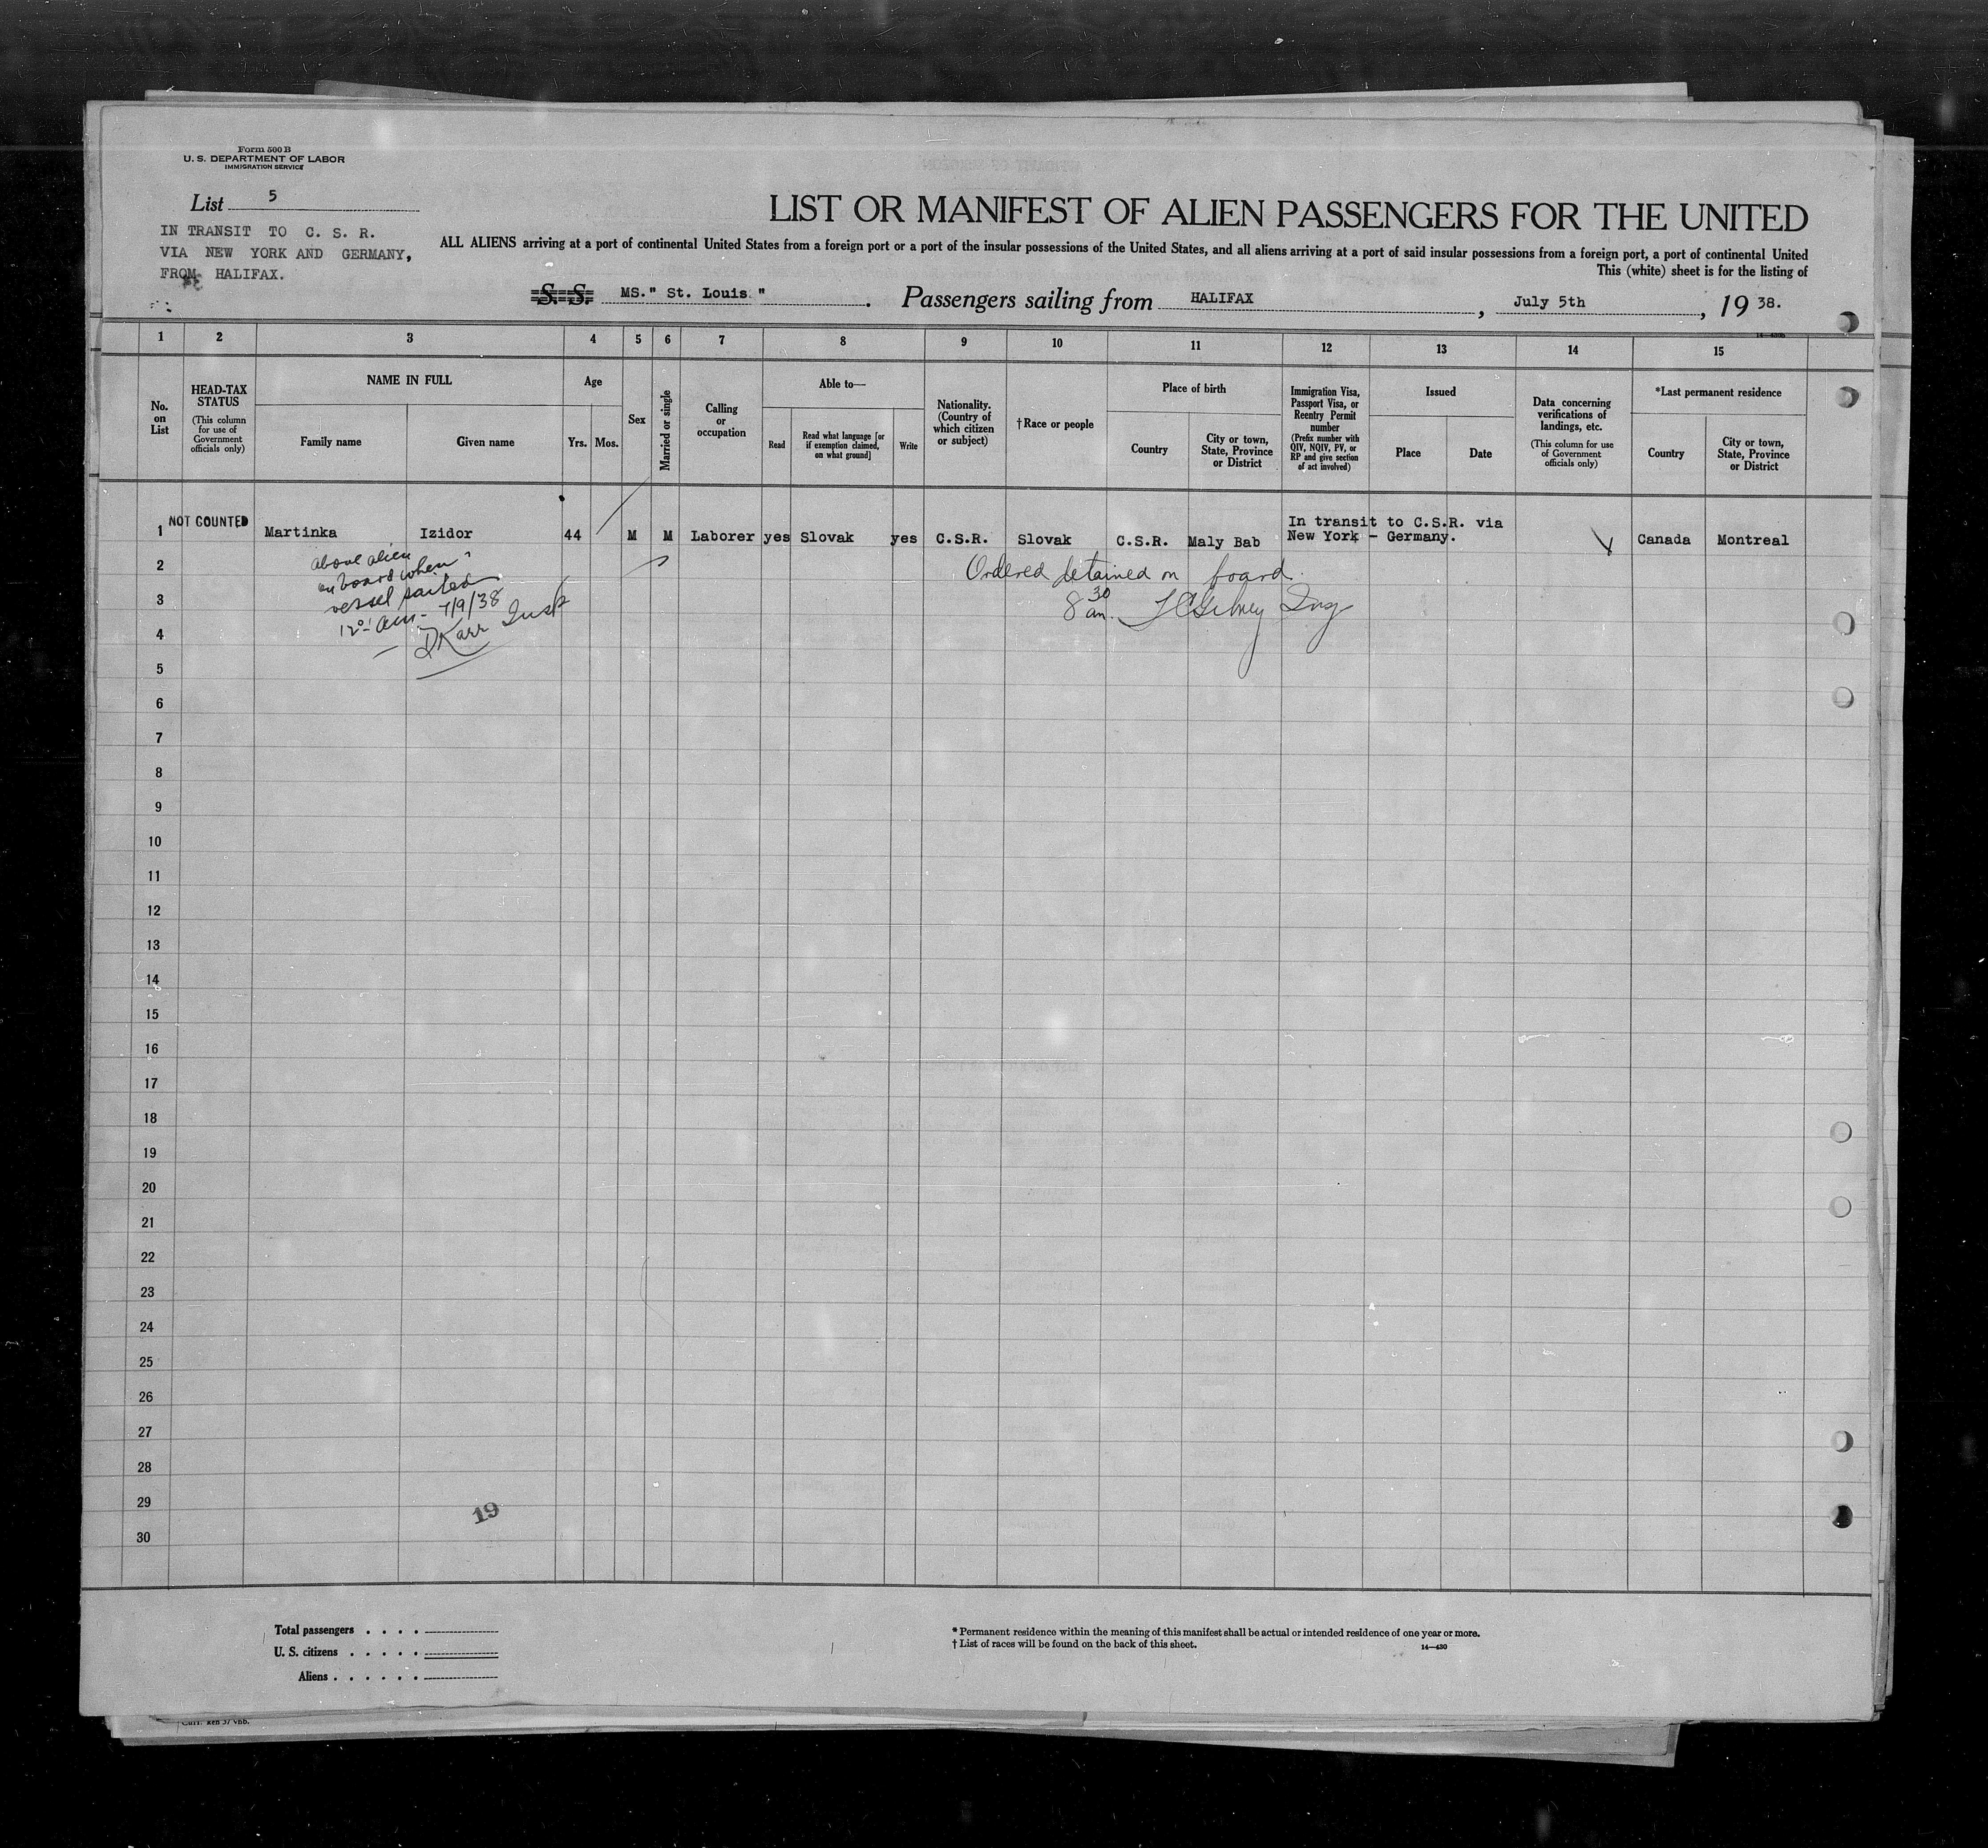 Form 500 B
U. S. DEPARTMENT OF LABOR
IMMIGRATION SERVICE
List 5
IN TRANSIT TO C. S. R.
VIA NEW YORK AND GERMANY,
FROM HALIFAX.
LIST OR MANIFEST OF ALIEN PASSENGERS FOR THE UNITED
ALL ALIENS arriving at a port of continental United States from a foreign port or a port of the insular possessions of the United States, and all aliens arriving at a port of said insular possessions from a foreign port, a port of continental United
This (white) sheet is for the listing of
S. S. MS." St. Louis " . Passengers sailing from HALIFAX , July 5th , 19 38.
1 2 3 4 5 6 7 8 9 10 11 12 13 14 15
No. on List
HEAD-TAX STATUS
(This column for use of Government officials only)
NAME IN FULL
Family name Given name
Age
Yrs. Mos.
Sex
Married or single
Calling or occupation
Able to—
Read
Read what language [or if exemption claimed, on what ground]
Write
Nationality. (Country of which citizen or subject)
†Race or people
Place of birth
Country
City or town, State, Province or District
Immigration Visa, Passport Visa, or Reentry Permit number
(Prefix number with QIV, NQIV, PV, or RP and give section of act involved)
Issued
Place Date
Data concerning verifications of landings, etc.
(This column for use of Government officials only)
*Last permanent residence
Country
City or town, State, Province or District
1 NOT COUNTED Martinka Izidor 44 M M Laborer yes Slovak yes C.S.R. Slovak C.S.R. Maly Bab In transit to C.S.R. via New York - Germany. Canada Montreal
above alien
on board when
vessel sailed
7/9/38
DKarr Insp
Ordered detained on board.
8 30 am.
2
3
4
5
6
7
8
9
10
11
12
13
14
15
16
17
18
19
20
21
22
23
24
25
26
27
28
29
30
19
Total passengers . . . .
U. S. citizens . . . . .
Aliens . . . . . .
* Permanent residence within the meaning of this manifest shall be actual or intended residence of one year or more.
† List of races will be found on the back of this sheet.
14—430